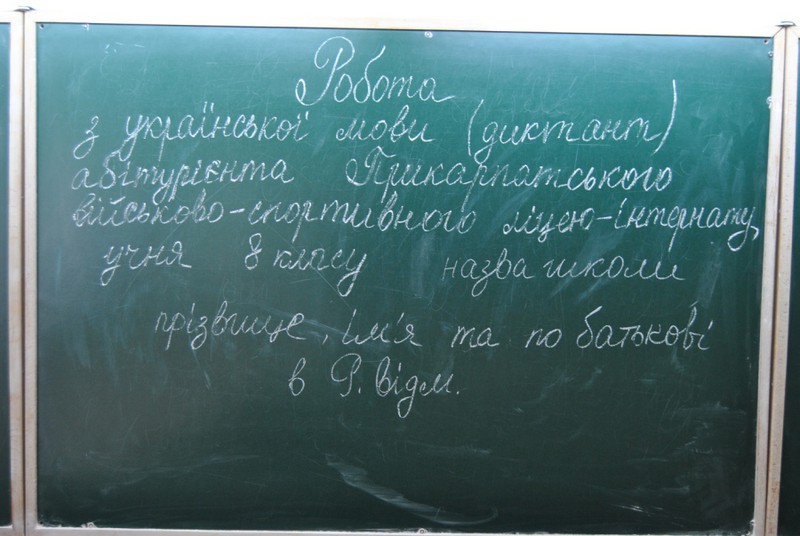 Робота
з української мови (диктант)
абітурієнта Прикарпатського
військово-спортивного ліцею-інтернату,
учня 8 класу назва школи
прізвище, ім'я та по батькові
в Р. відм.